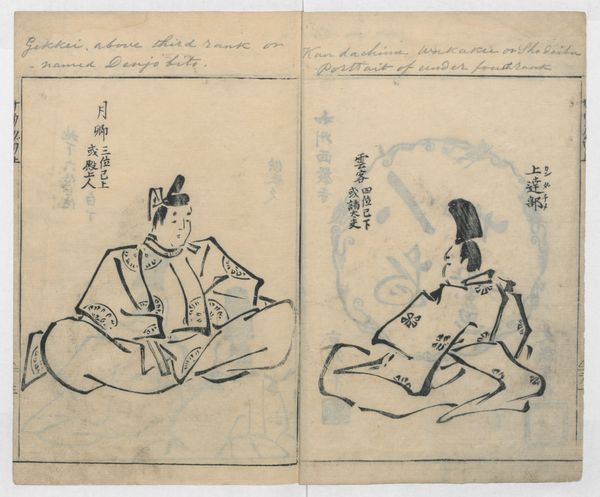 Gekkei. above third rank or
named Denjo bito.
Kandachime Unkakie or Shodaibu
Portrait of under fouth rank
上達部
カンダチメ
雲客
四位已下
或諸太夫
月卿
三位已上
或殿上人